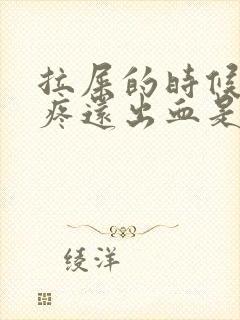 拉屎的時候
疼還出血是
綾洋